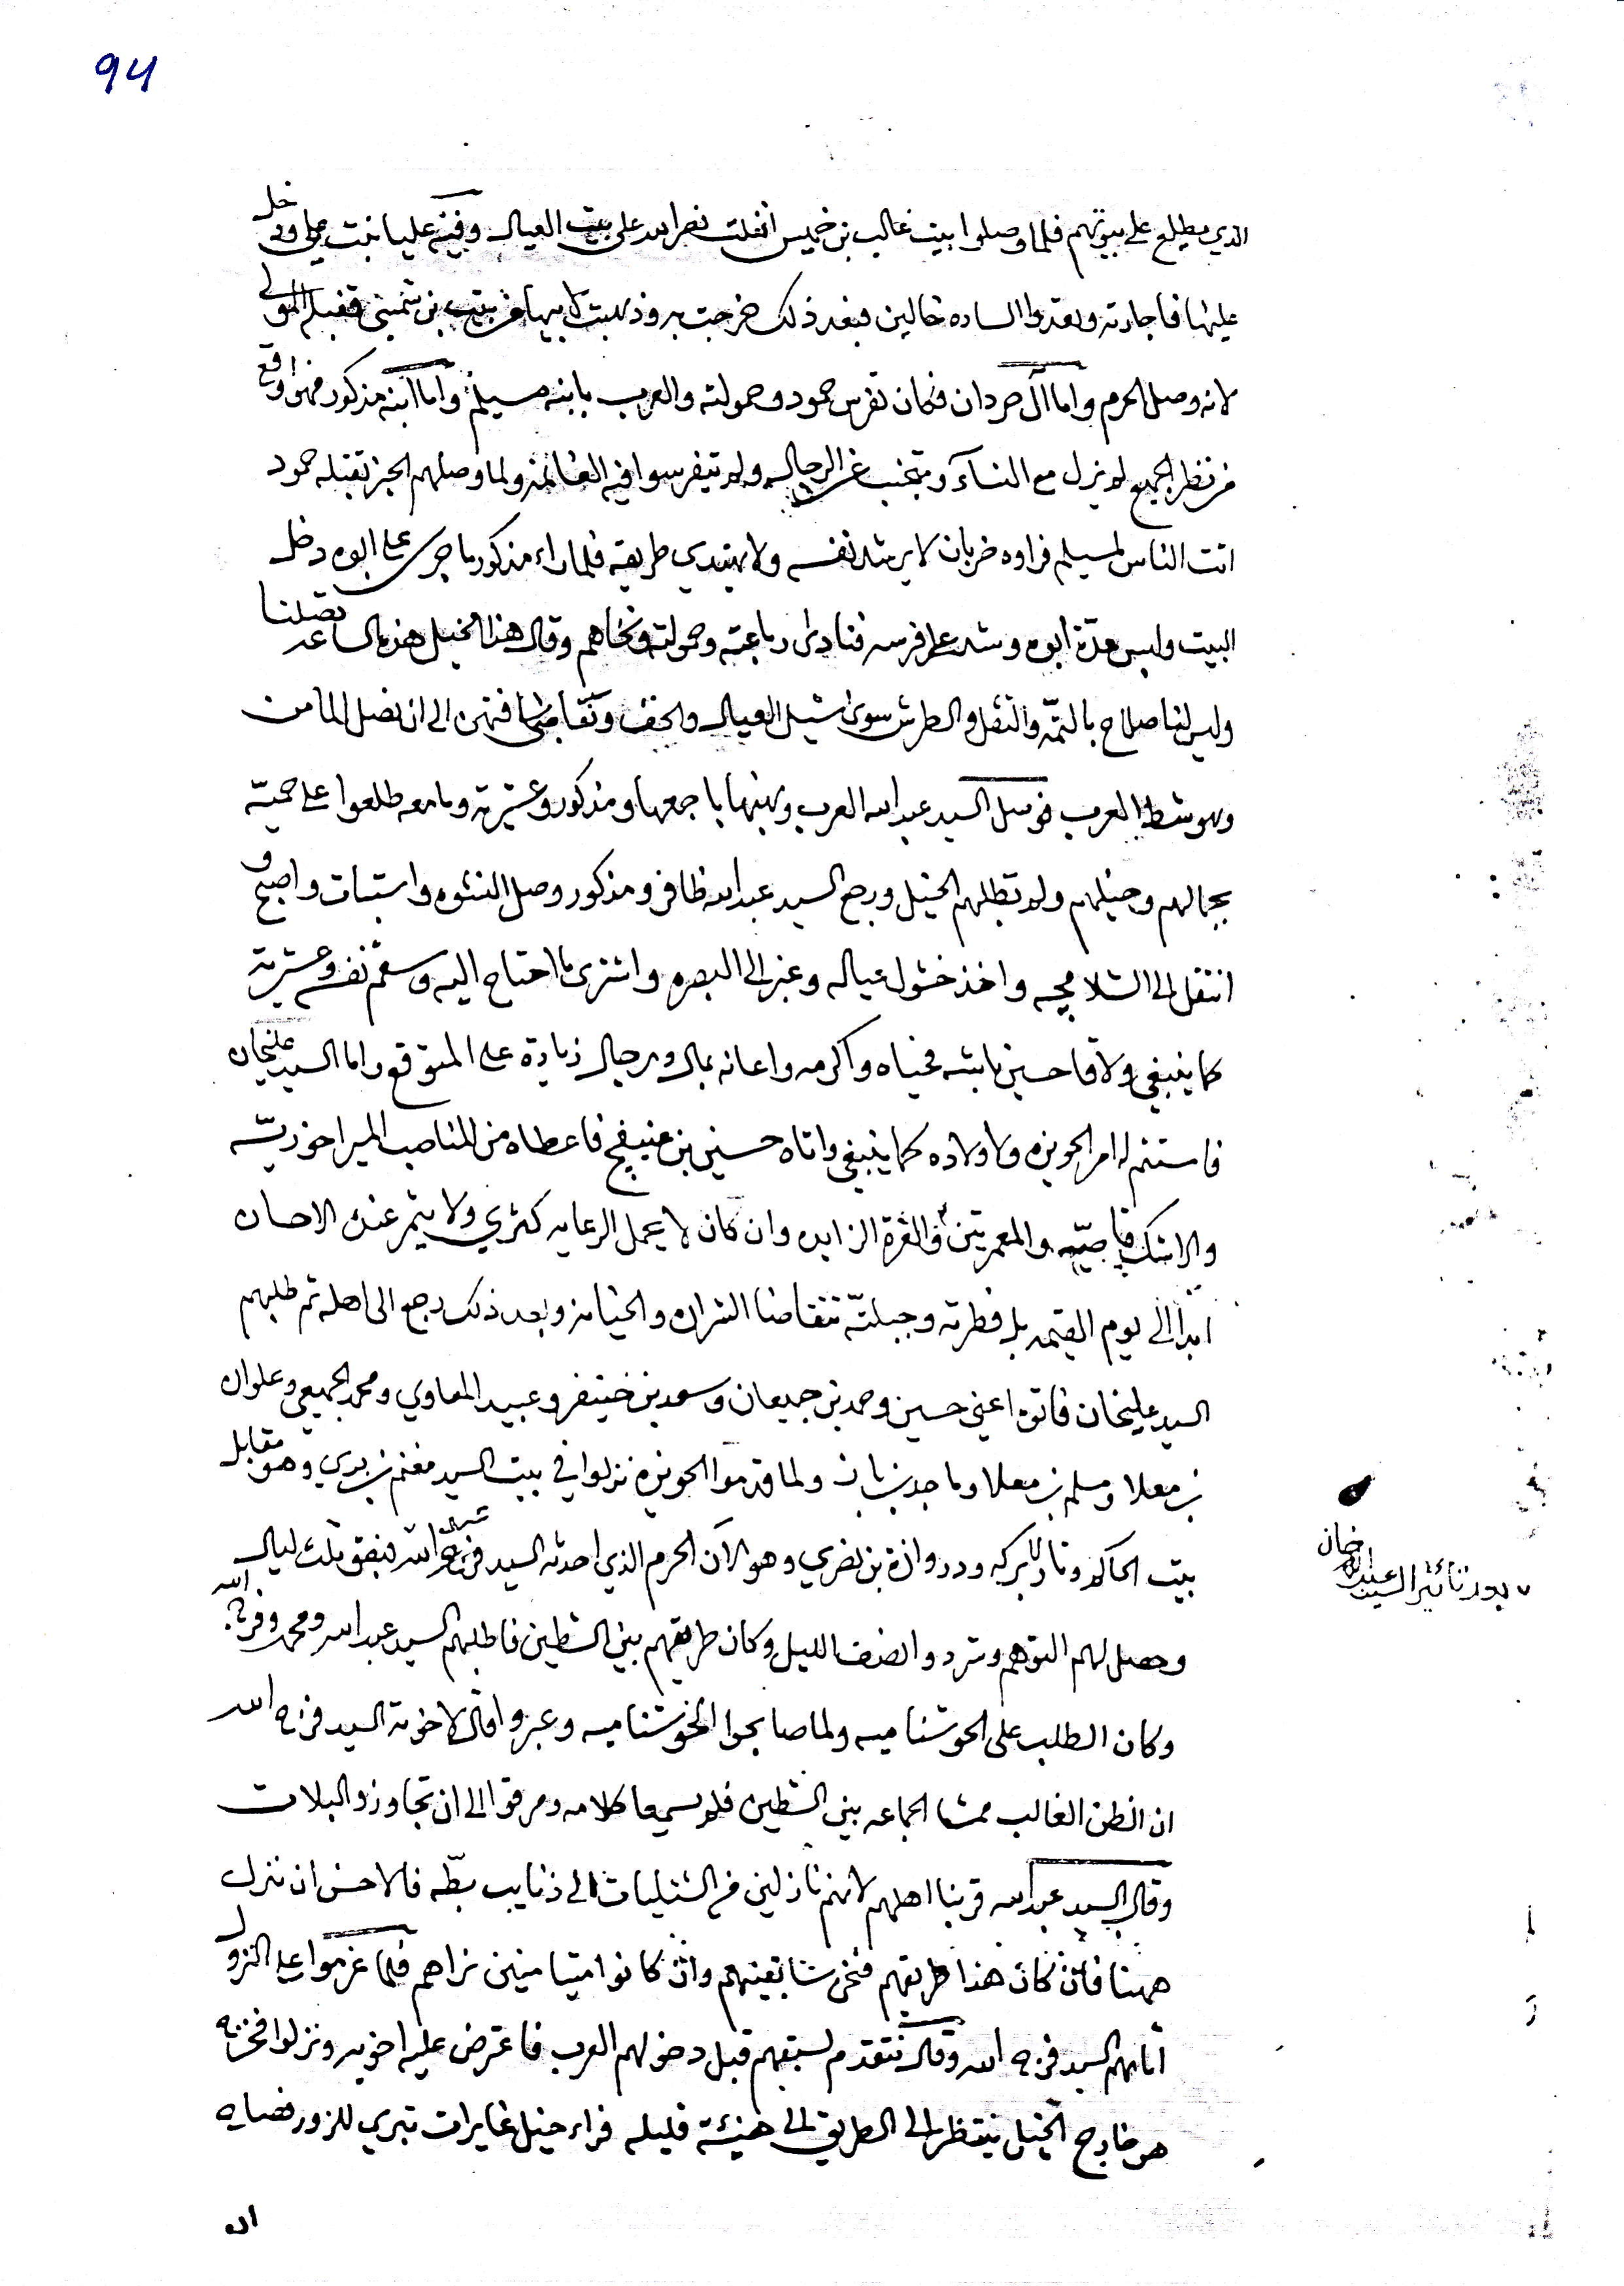 94
الذي يطلع على بيوتهم فلما وصلوا بيت غالب بن خميس انفلت نصر الله على بيت العيال وفيه عليا بنت ودخل
عليها فاجارته وبعدوا الساده خالين فبعد ذلك خرجت به وذهبت لابيها
لانه وصل الحرم واما آل حردان فكان تفرس حمود وحمولته والعرب بابنه مسيلم واما ابنه مذكور فهو واقع
من نظر الجميع لم ينزل مع النساء ويتجنب عن الرجال ولم يتفرسوا فيه الغانمة ولما وصلهم الخبر بقتله حمود
اتت الناس لمسيلم فراوه خربان لا يرشد نفسه ولا يهتدي طريقه فلما راء مذكور ما جرى على ابوه دخل
البيت ولبس عدة ابوه وشد على فرسه فنادى رباعته وحمولته ونخاهم وقال هذا الخيل هذه الساعه تصلنا
وليس لنا صلاح بالتمه والثقل والطرش سوى نشيل العيال والخف
وهو شط العرب فوصل السيد عبد الله العرب ونهبها باجمعها ومذكور وعشيرته وما معه طلعوا على حميه
بجمالهم وخيلهم ولم تطلبهم الخيل ورجع السيد عبد الله ظافر ومذكور وصل النشوه واستبات واصبح و
انتقل الى الشلامجه واخذ خشول عياله وعبر الى البصره واشترى ما احتاج اليه وسقم نفسه وعشيرته
كما ينبغي ولاقا حسين باشه فحياه واكرمه واعانه بمال ورجال زيادة على المتوقع واما السيد عليخان
فاستتم له امر الحويزه ولاولاده كما ينبغي واتاه حسين بن عنيفج فاعطاه من المناصب الميراخوريه
والمعمريتين والثمرة الزايده وان كان لا يحمل الرعايه كثري ولا يثمر عنده الاحسان
ابدا الى يوم القيمه بل فطرته وجبلته تتقاضا الشراره والخيانه وبعد ذلك رجع الى اهله ثم طلبهم
السيد عليخان فاتوه اعني حسين وحمد بن جميعان وسعد بن خنيفر وعبيد المعاوي ومحمد الجميعي وعلوان
بن معلا ومسلم بن معلا وماجد بن بان ولما قدموا الحويزه نزلوا في بيت السيد مغنم بن بدي وهو مقابل
بيت الحاكم ودروازة بن نضري وهو الآن الحرم الذي احدثه السيد فرج الله فبقو ثلث ليال
وحصل لهم التوهم وشردوا نصف الليل وكان طريقهم بين الشطين فاطلبهم السيد عبد الله ومحمد وفرج الله
وكان الطلب على الخوشناميه ولما صابحوا الخوشناميه وعبروا قال لاخوته السيد فرج الله
ان الظن الغالب ممشا الجماعه بين الشطين فلم يسمعا كلامه ومرقوا الى ان تجاوزو البلات
وقال السيد عبد الله قربنا اهلهم لانهم نازلين في الشليات الى ذنايب بطه فالاحسن ان ننزل
ههنا فان كان هذا طريقهم فنحن سابقينهم وان كانوا متيامنين نراهم فلما عزموا على النزول
اتاهم السيد فرج الله وقال نتقدم لسبقهم قبل دخولهم العرب فاعترض عليه اخويه ونزلوا فخرج
هو خارج الخيل ينتظر الى الطريق الى هنيئة قليله فراء خيل غايرات تبري للزور فصاح
السيد عبد الله خان
ان